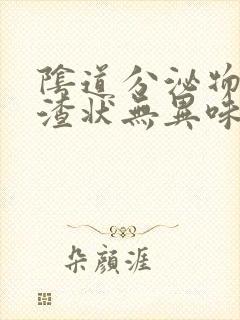 陰道分泌物
渣狀無異味
朵顏涯